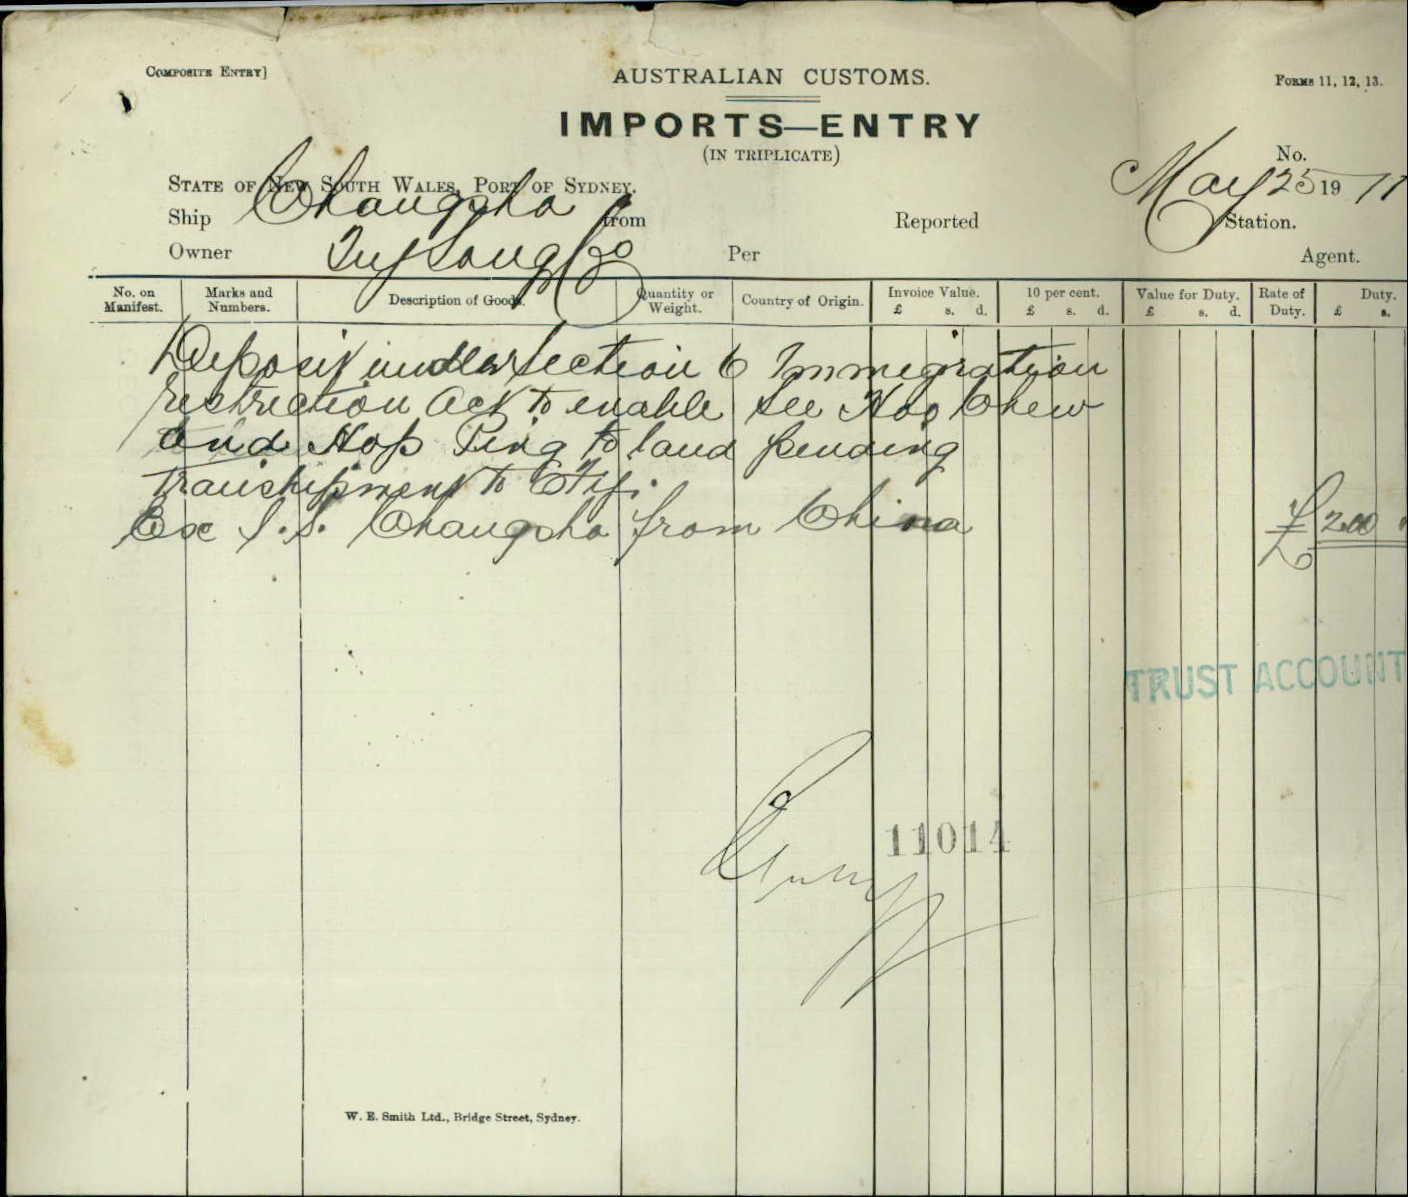 COMPOSITE ENTRY]
AUSTRALIAN CUSTOMS.
FORMS 11, 12, 13.
IMPORTS—ENTRY
(IN TRIPLICATE)
No.
STATE OF NEW SOUTH WALES, PORT OF SYDNEY.
May 25 1911
Ship Changsha from Reported Station.
Owner Long Co Per Agent.
No. on Manifest. Marks and Numbers. Description of Goods. Quantity or Weight. Country of Origin. Invoice Value. £ s. d. 10 per cent. £ s. d. Value for Duty. £ s. d. Rate of Duty. Duty. £ s.
Deposit under Section 6 Immigration
restriction Act to enable See Hoo Chew
and Hop Ping to land pending
transhipment to Fiji.
Ex S.S. Changsha from China
£200
TRUST ACCOUNT
11014
W. E. Smith Ltd., Bridge Street, Sydney.